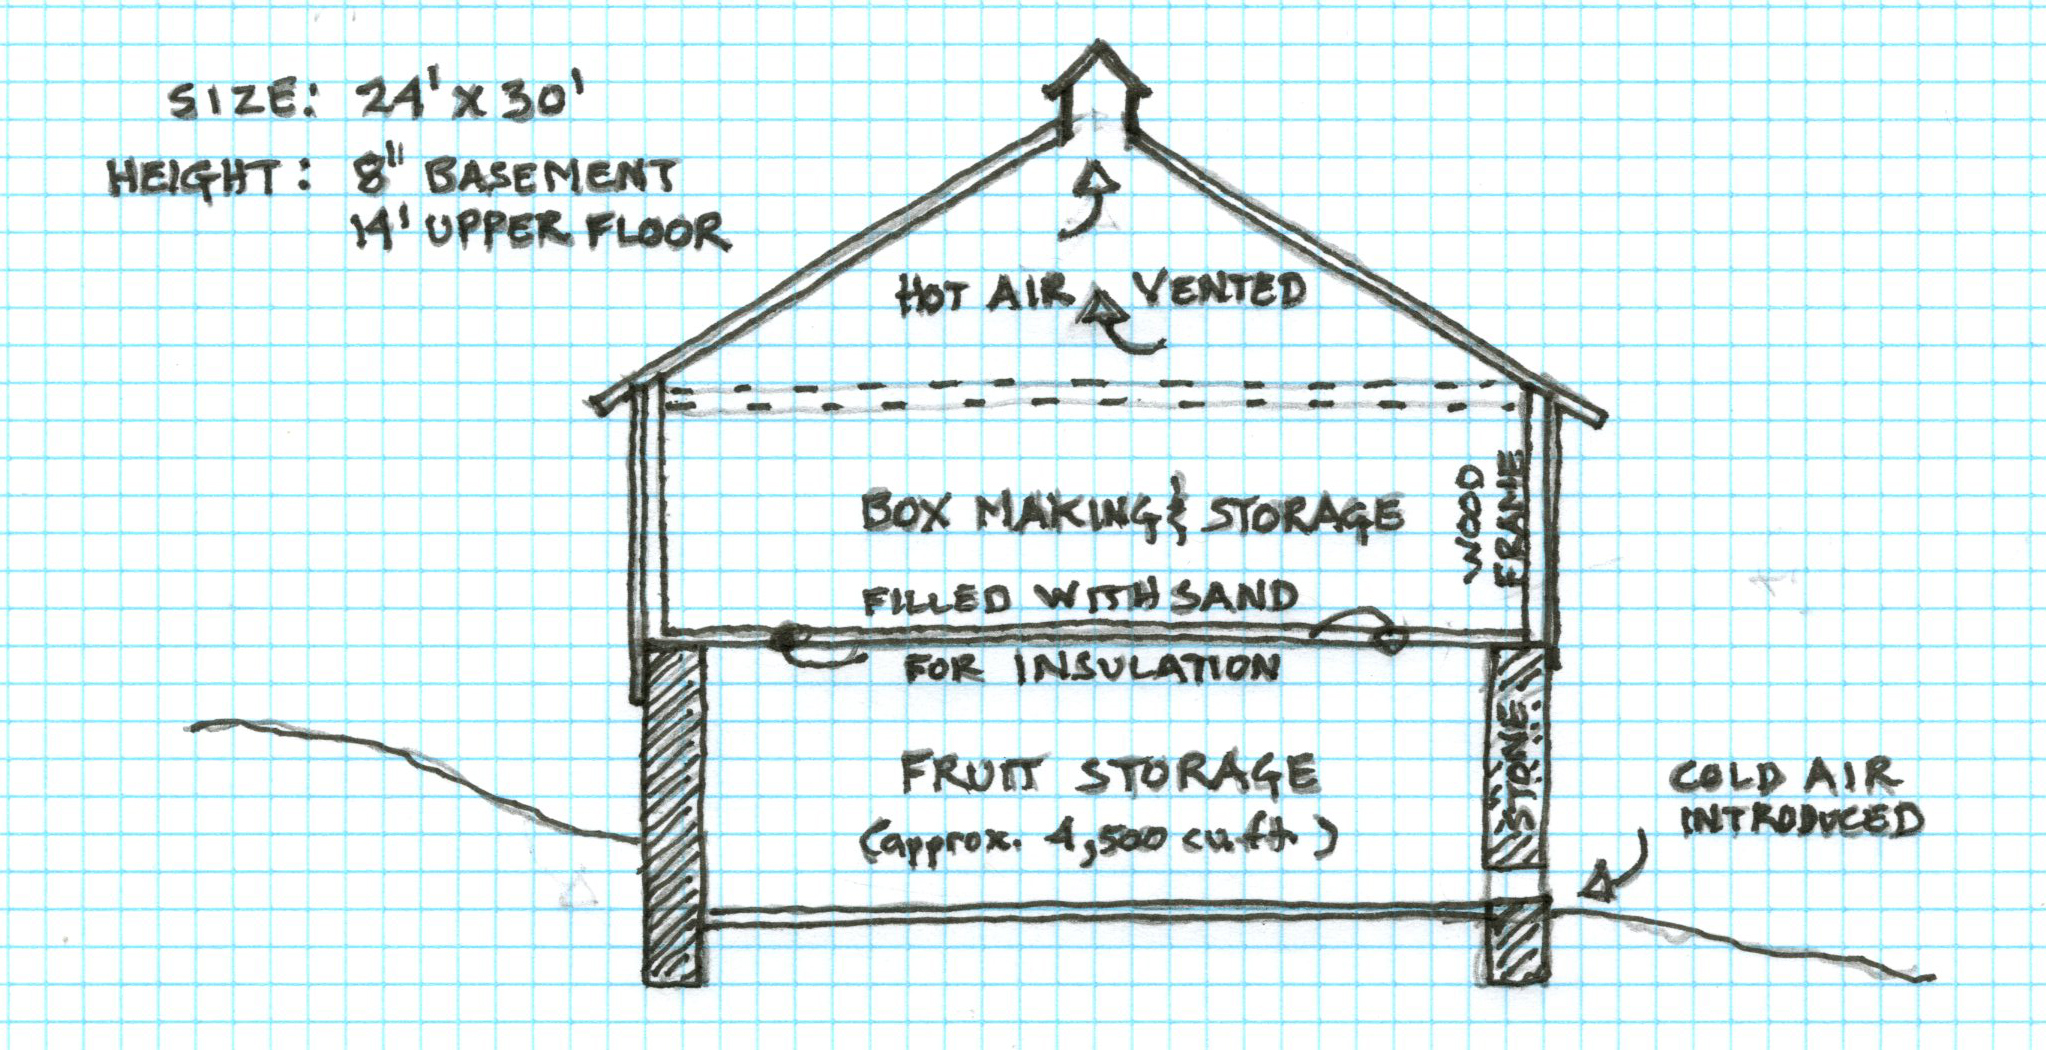 SIZE: 24' X 30'
HEIGHT: 8" BASEMENT
14' UPPER FLOOR
HOT AIR VENTED
BOX MAKING & STORAGE
WOOD
FRAME
FILLED WITH SAND
FOR INSULATION
FRUIT STORAGE
(approx. 4,500 cu.ft.)
STONE
COLD AIR
INTRODUCED